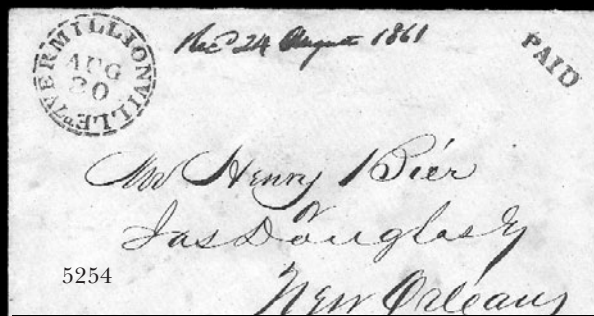 VERMILLIONVILLE LA
AUG
20
Rec 24 August 1861
PAID
Mr Henry Bier
or
Jas Douglas Esq
5254
New Orleans